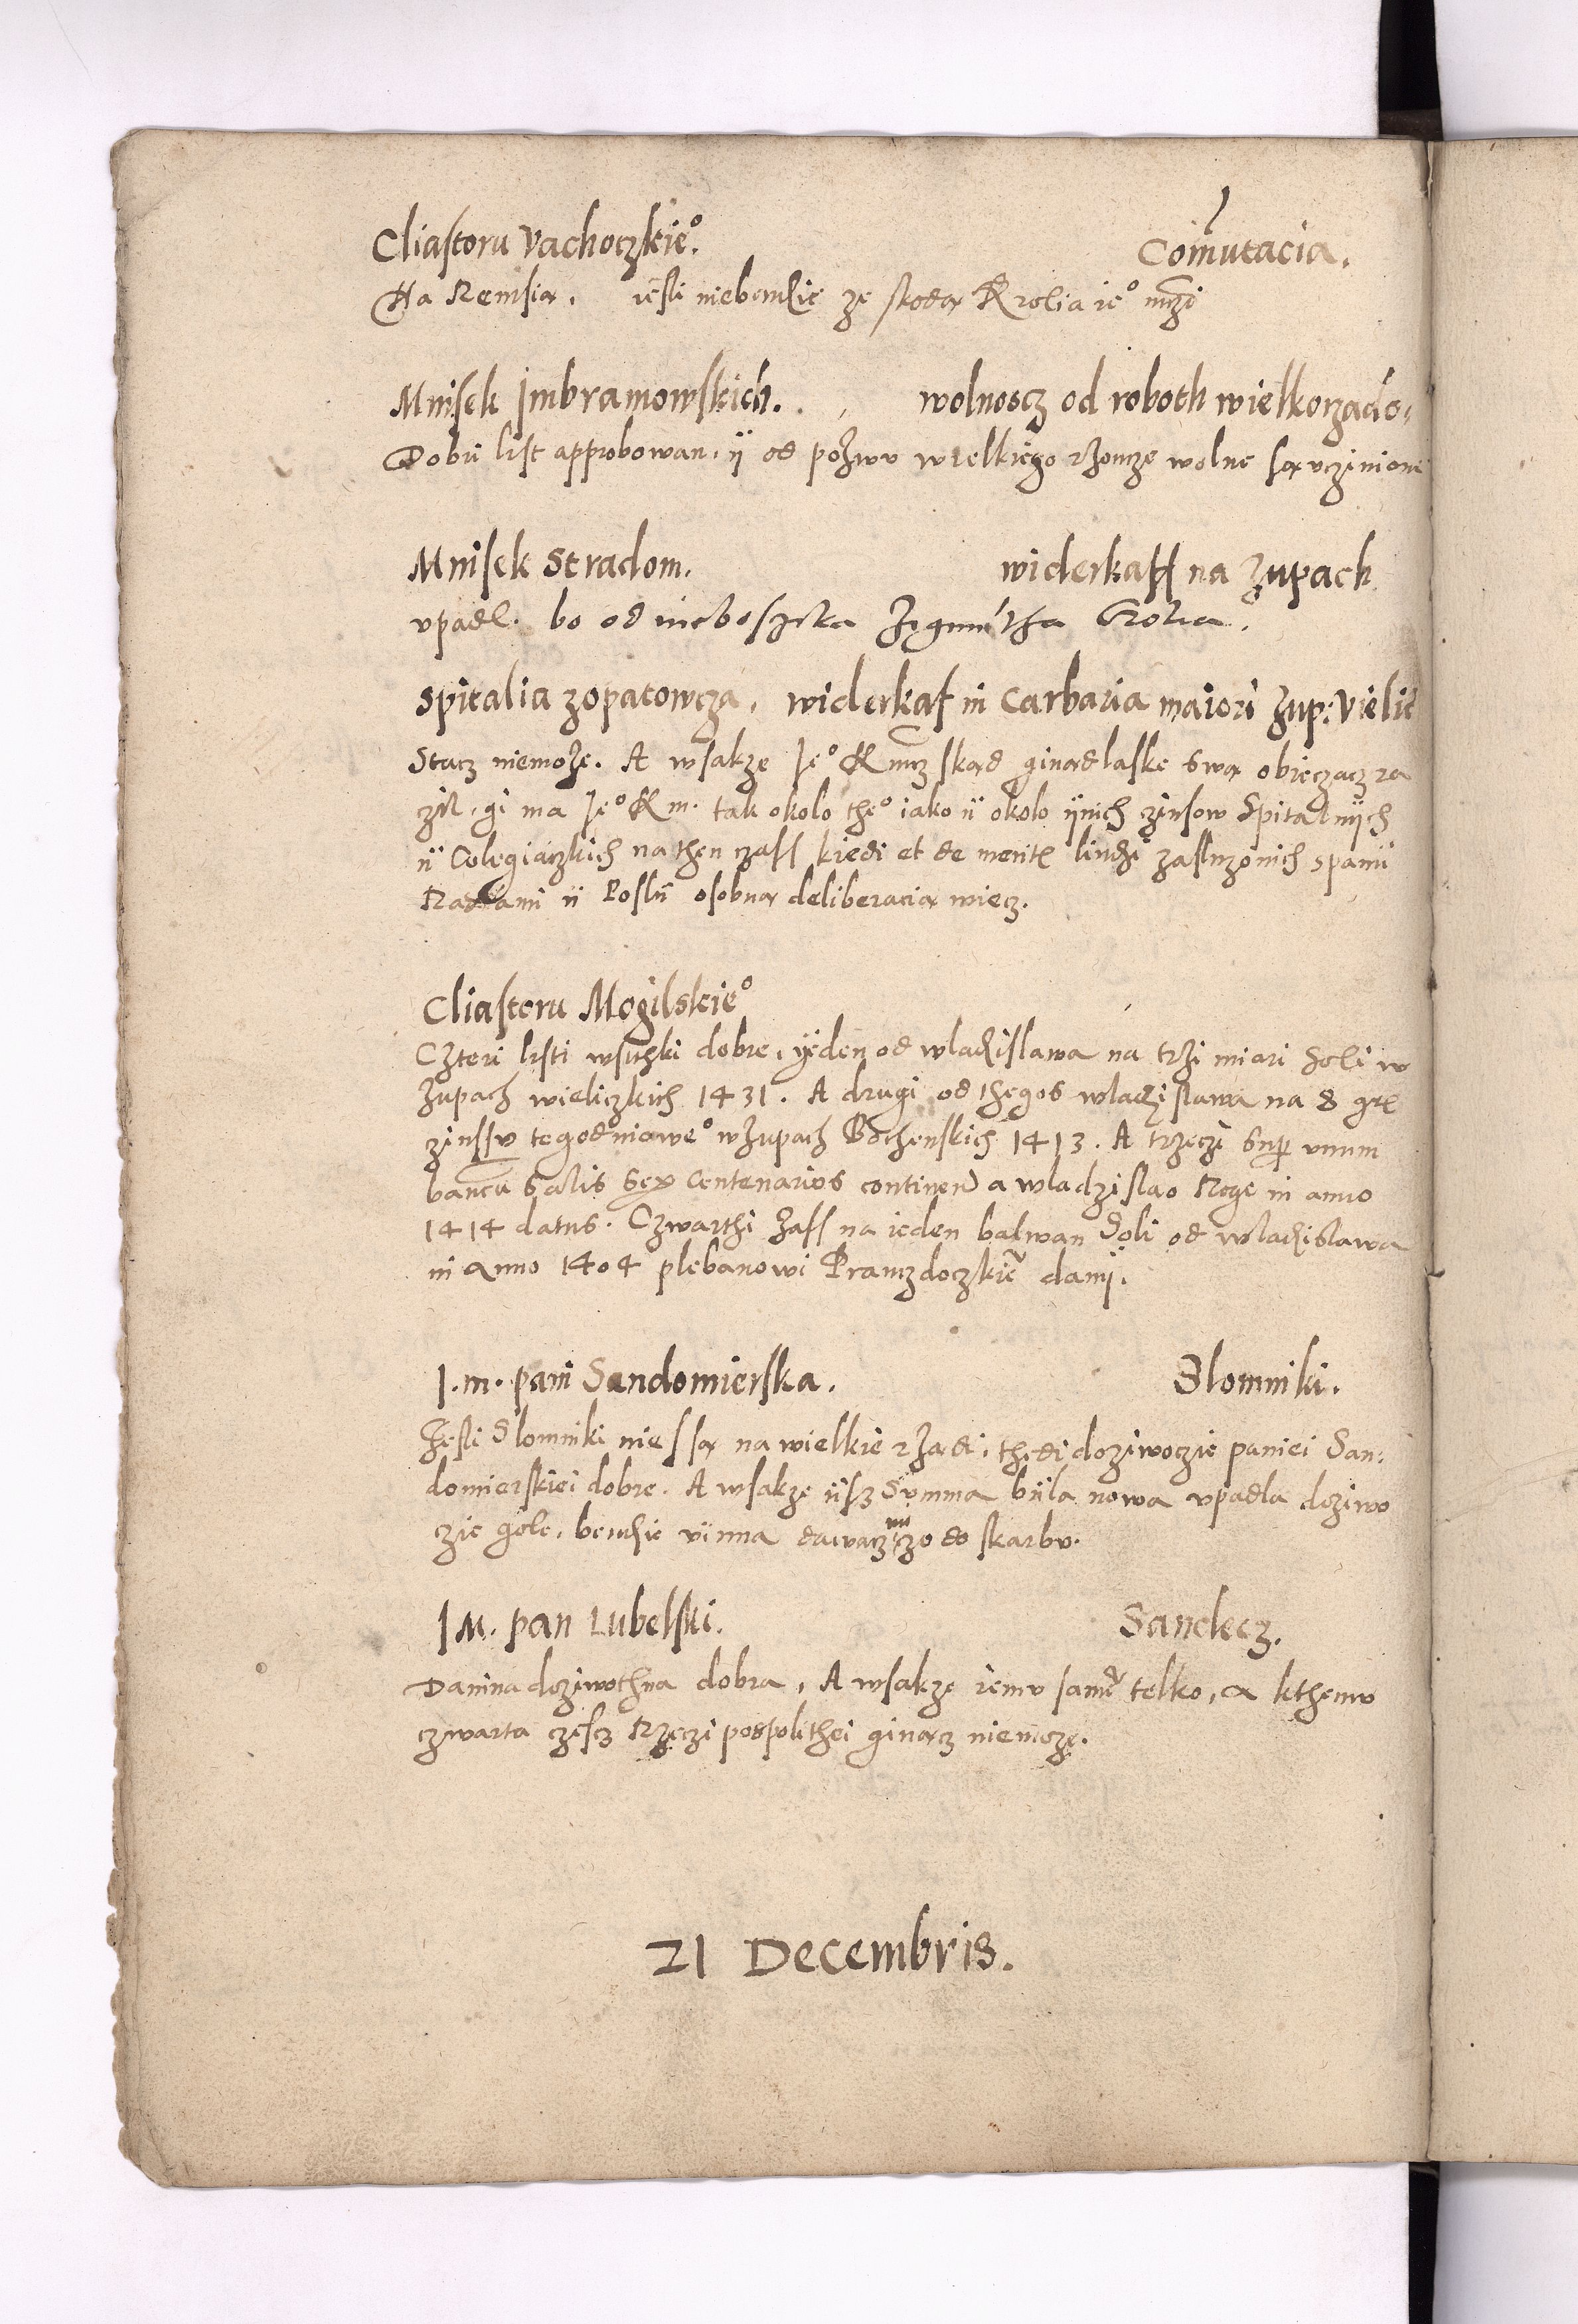 Cliastoru Vachoczkie°. Com̃utacia.
Na Remisią. iesli niebendzie ze skodą Krolia ie° mczi
Mnisek Imbramowskich. wolnoscz od roboth wielkorzado:
Dobri list approbowan. ÿ od pozwu wielkiego rzoncze wolne są vczinione
Mnisek Stradom. widerkaff na Zupach
vpadl. bo od nieboscika Zigmũtha Crolia.
Spitalia zopatowcza. widerkaf in Carbaria maiori Zup: Vielic
Stacz niemoze. A wsakze Je° K mcz skąd ginąd laske swą obieczacz ra
zil. gi ma Je° K m. tak okolo the° iako ÿ okolo ÿnich zinsow Spitalnÿch
ÿ Colegiaczkich na then czass kiedi et de meritis liudzi zasluzonich spanÿ
Radami ÿ Poslÿ osobną deliberacią wiecz.
Cliastoru Mogilskie°
Czteri listi wsitzki dobre, ÿeden od wladzislawa na trzi miari Soli w
Zupach wieliczkich 1431. A drugi od thegos wladzislawa na 8 grz
zinssu tegodniowe° w Zupach Bochenskich 1413. A trzeczi sup unum
bancũ Salis sex Centenarios continen a wladzislao Rege in anno
1414 datus. Czwarthi zass na ieden balwan Soli od wladzislawa
in anno 1404 plebanowi Prandoczkiẽ danÿ.
J. m. pani Sandomierska. Slomniki.
Jesli Slomniki nie ssą na wielkie rządi, thedi doziwoczie paniei San:
domierskiei dobre. A wsakze ÿsz Summa bÿla nowa vpadla doziwo
czie gole, bendzie vinna dawacz nieczo do skarbu.
J M. pan Lubelski. Sandecz.
Danina doziwothna dobra, A wsakze iemu samẽ telko, a kthemu
czwarta czescz Rzeczi pospolithei ginącz niemoze.
21 Decembris.